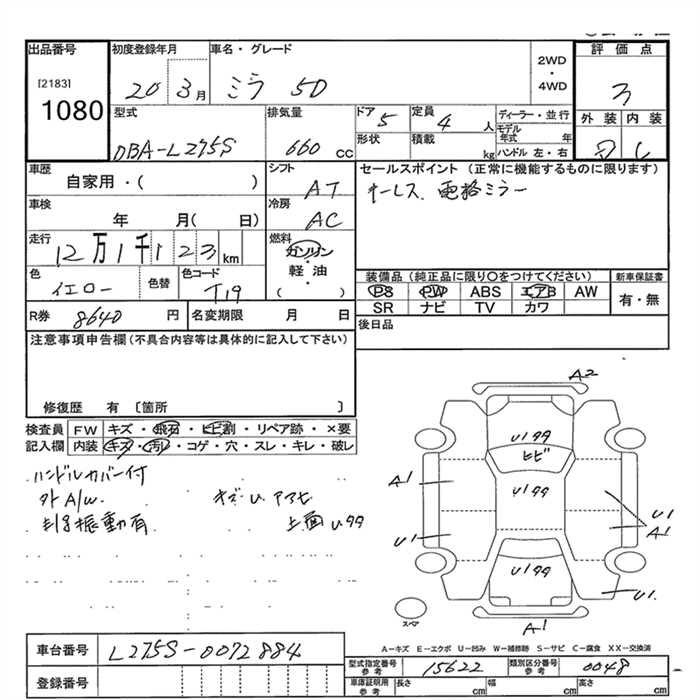 出品番号
[2183]
1080
初度登録年月
20 3月
車名・グレード
ミラ 5D
2WD
・
4WD
評価点
3
型式
DBA-L275S
排気量
660 cc
ドア
5
定員
4 人
形状
積載
kg
ディーラー・並行
モデル年式 年
ハンドル 左・右
外装 内装
車歴
自家用・( )
シフト
AT
車検
年 月( 日)
冷房
AC
走行
12万1千123km
燃料
ガソリン
・
軽油
・
( )
色
イエロー
色替
色コード
T19
R券 8640 円
名変期限 月 日
セールスポイント (正常に機能するものに限ります)
キーレス、電格ミラー
装備品 (純正品に限り〇をつけてください)
PS PW ABS エアB AW
SR ナビ TV カワ
新車保証書
有・無
後日品
注意事項申告欄(不具合内容等は具体的に記入して下さい)
修復歴 有 〔箇所 〕
検査員記入欄
FW キズ・飛石・ヒビ割・リペア跡・×要
内装 キズ・汚レ・コゲ・穴・スレ・キレ・破レ
ハンドルカバー付
外A/W
振動有
上面
A2
ヒビ
A1
U1
U1
A1
U1
A1
スペア
A-キズ E-エクボ U-凹み W-補修跡 S-サビ C-腐食 XX-交換済
車台番号 L275S-0072884
登録番号
型式指定番号参考 15622
類別区分番号参考 0048
車庫証明用参考 長さ cm 幅 cm 高さ cm